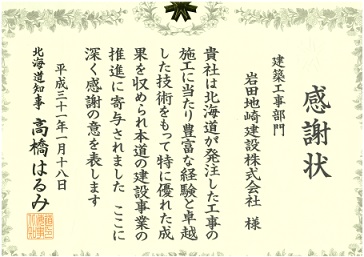 感謝状
建築工事部門
岩田地崎建設株式会社 様
貴社は北海道が発注した工事の
施工に当たり豊富な経験と卓越
した技術をもって特に優れた成
果を収められ本道の建設事業の
推進に寄与されました ここに
深く感謝の意を表します
平成三十一年一月十八日
北海道知事 高橋はるみ